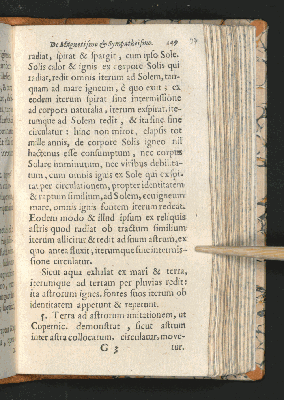 De Magnetismo & Sympatheismo. 149
radiat, spirat & spargit, cum ipso Sole.
Solis calor & ignis ex corpore Solis qui
radiat, redit omnis iterum ad Solem, tan-
quam ad mare igneum, è quo exiit; ex
eodem iterum spirat sine intermissione
ad corpora naturalia, iterum expirat, ite-
rumque ad Solem redit, & ita sine fine
circulatur: hinc non miror, elapsis tot
mille annis, de corpore Solis igneo nil
hactenus esse consumptum, nec corpus
Solare imminutum, nec viribus debilita-
tum, cum omnis ignis ex Sole qui exspi-
rat per circulationem, propter identitatem
& raptum similium, ad Solem, ceu igneum
mare, omnis ignis fontem iterum redeat.
Eodem modo & illud ipsum ex reliquis
astris quod radiat ob tractum similium
iterum allicitur & redit ad suum astrum, ex
quo antea fluxit, iterumque sine intermis-
sione circulatur.
Sicut aqua exhalat ex mari & terra,
iterumque ad terram per pluvias redit:
ita astrorum ignes, fontes suos iterum ob
identitatem appetunt & repetunt.
5. Terra ad astrorum imitationem, ut
Copernic. demonstrat, sicut astrum
inter astra collocatum, circulatur, move-
G 3 tur.